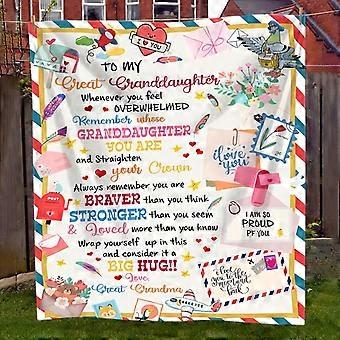 I ♥ YOU
TO MY
Great Granddaughter
Whenever you feel
OVERWHELMED
Remember whose
GRANDDAUGHTER
YOU ARE
and Straighten
your Crown
Always remember you are
BRAVER than you think
STRONGER than you seem
& Loved more than you know
Wrap yourself up in this
and consider it a
BIG HUG!!
Love,
Great Grandma
I love you
I AM SO
PROUD
PF YOU
POST
I love
you to the
moon and
back